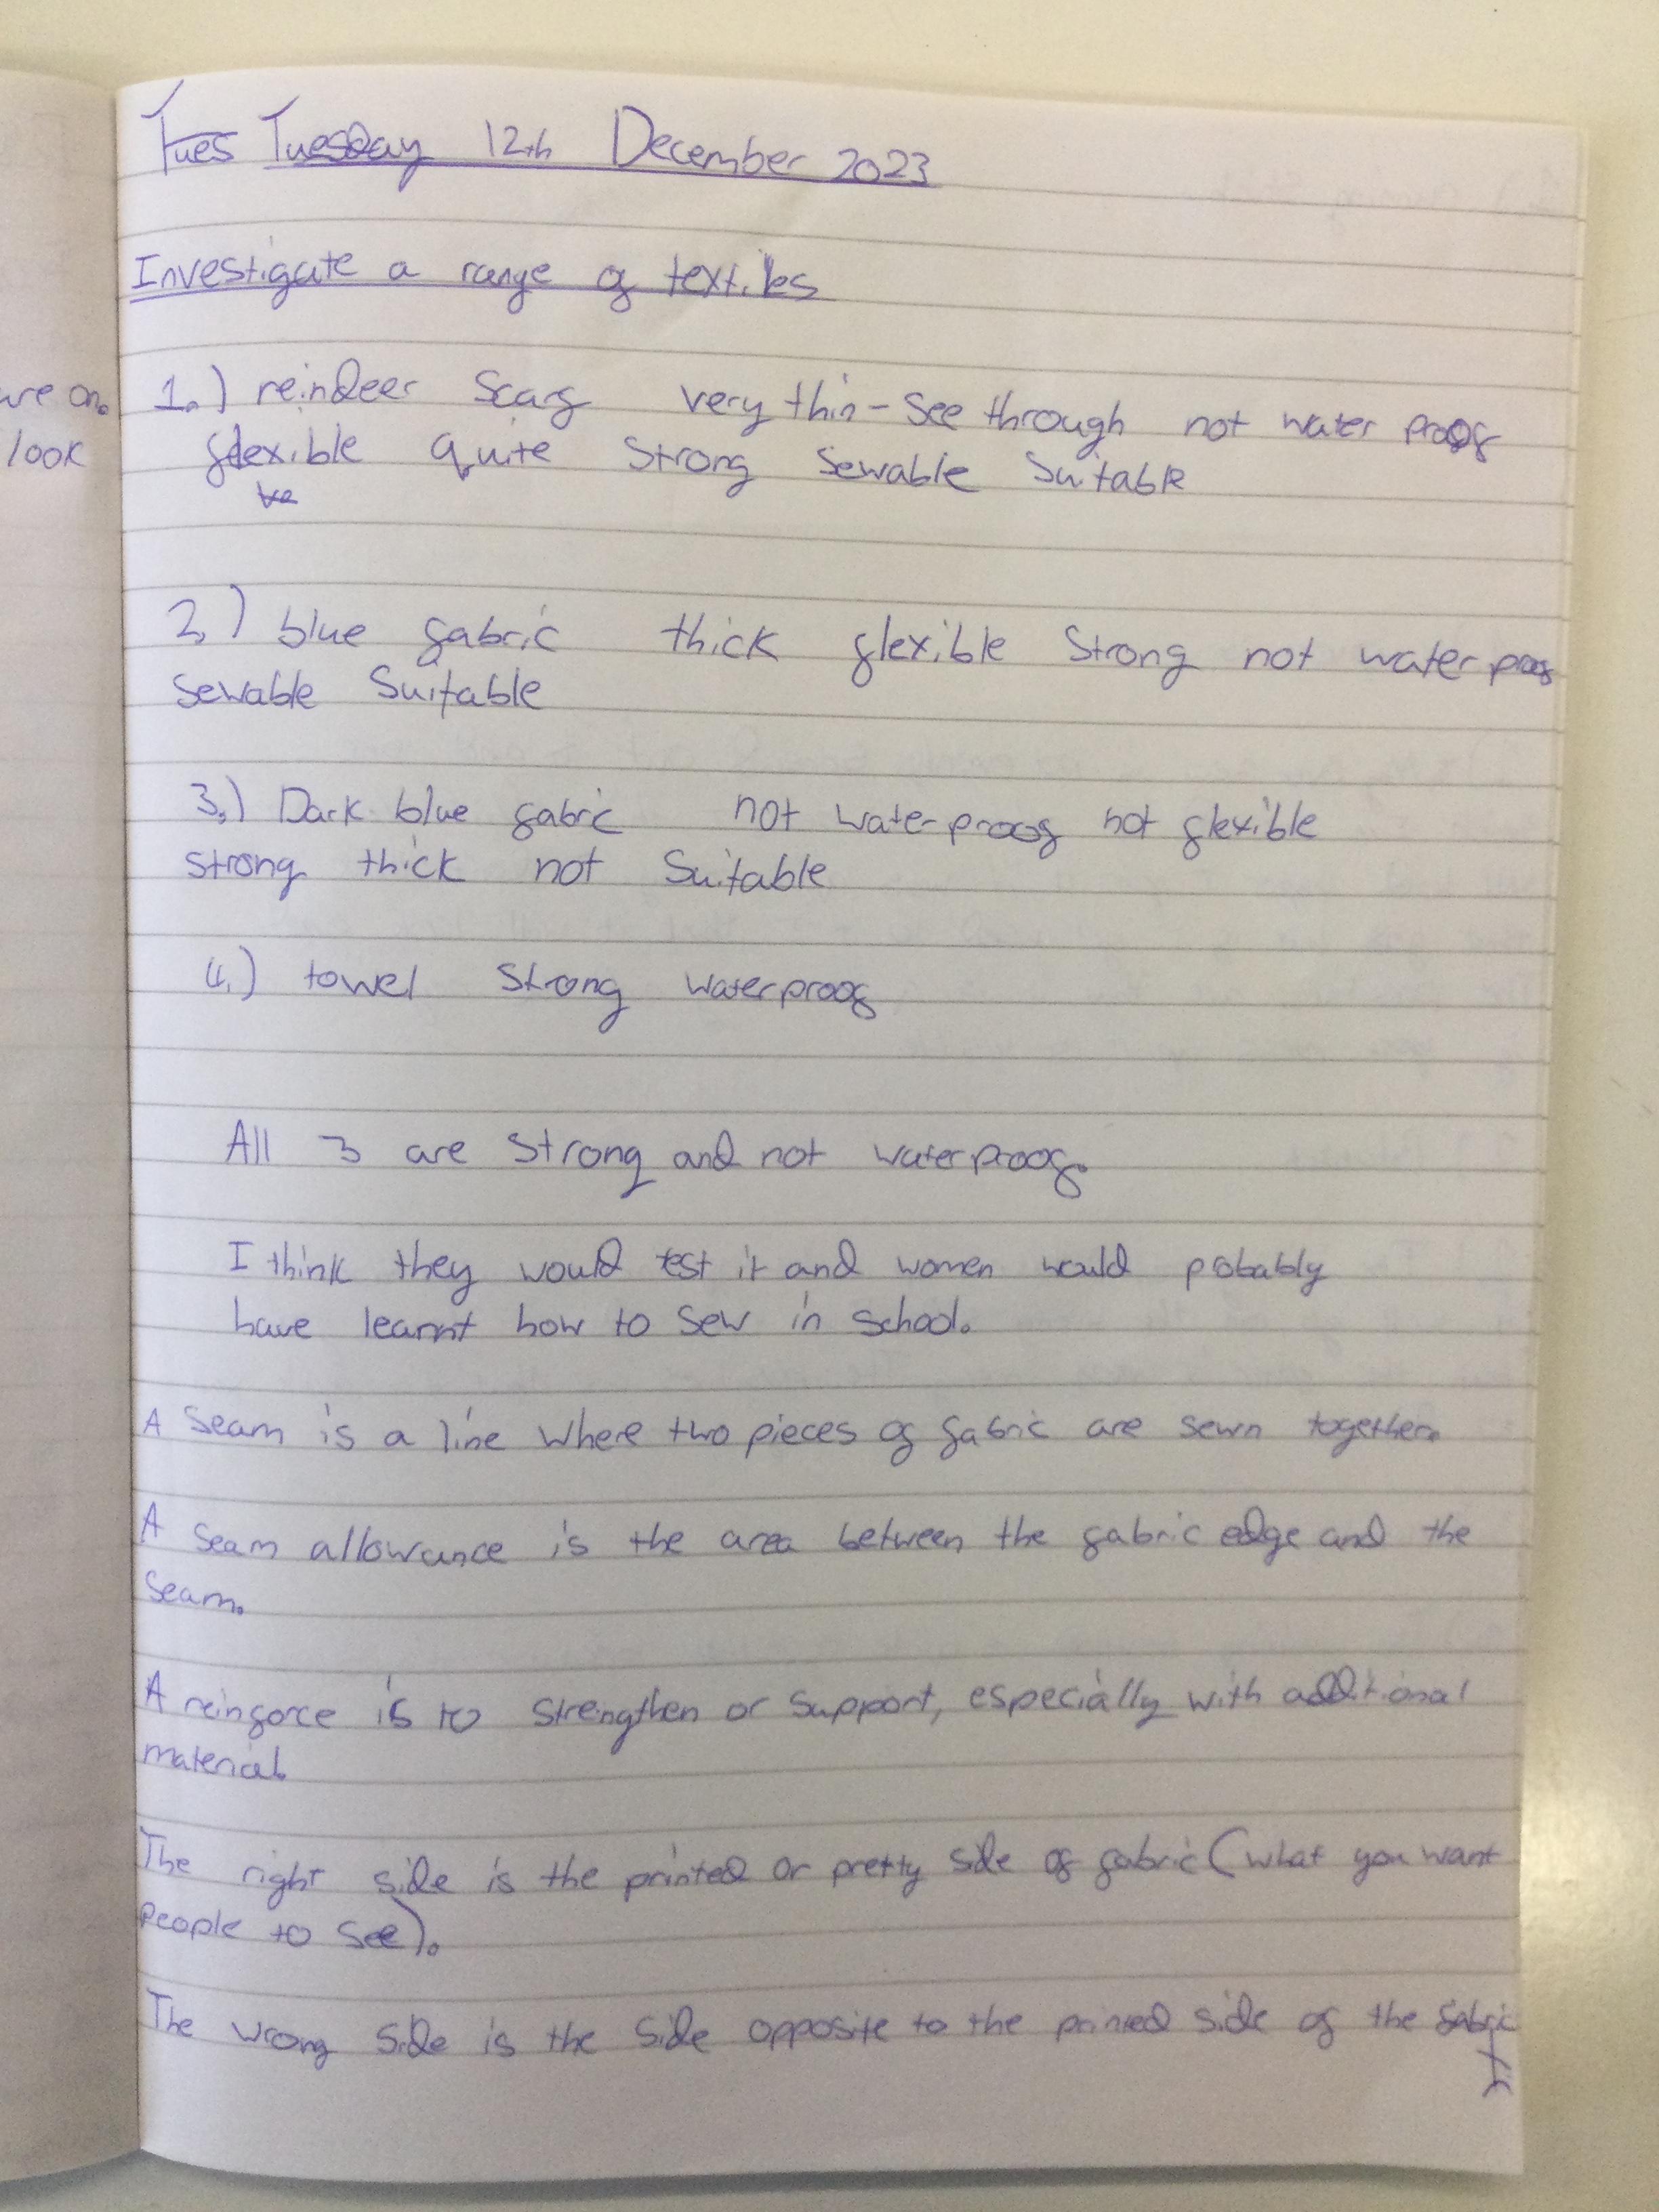 Tues Tuesday 12th December 2023
Investigate a range of textiles
are on.
look
1.) reindeer scarf very thin - see through not water proof
flexible quite strong sewable suitable
2.) blue fabric thick flexible strong not water proof
sewable suitable
3.) Dark blue fabric not waterproof not flexible
strong thick not suitable
4.) towel strong waterproof
All 3 are strong and not waterproof.
I think they would test it and women would probably
have learnt how to sew in school.
A seam is a line where two pieces of fabric are sewn together.
A seam allowance is the area between the fabric edge and the
seam.
A reinforce is to strengthen or support, especially with additional
material.
The right side is the printed or pretty side of fabric (what you want
people to see).
The wrong side is the side opposite to the printed side of the fabric